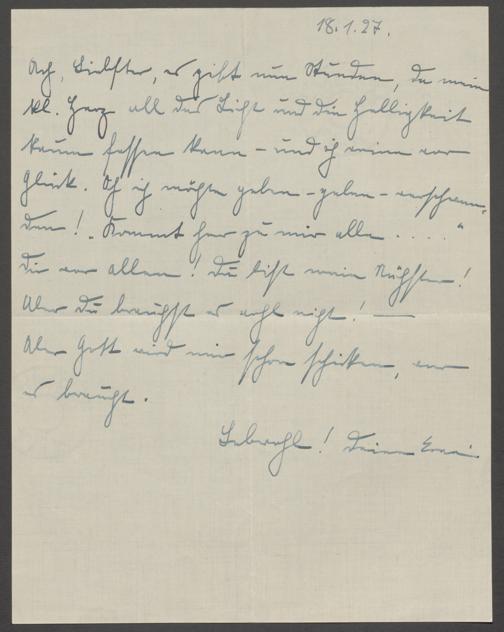 18.1.27.
Ach, Liebster, es gibt nun Stunden, da mein
kl. Herz all das Licht und die Helligkeit
kaum fassen kann – und ich weine vor
Glück. Ach ich möchte geben – geben – verschwen-
den! „Kommt her zu mir alle . . . . "
Du vor allem! Du bist mein Nächster!
Aber Du brauchst es nicht! —
Aber Gott wird mir schon schicken, wer
es braucht.
Lebwohl! Deine